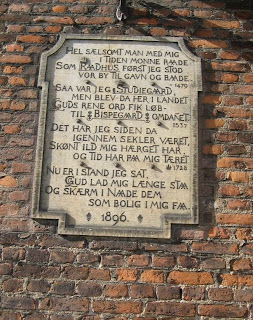 HEL SÆLSOMT MAN MED MIG
I TIDEN MONNE RAADE
SOM RAADHUS FØRST JEG STOD
VOR BY TIL GAVN OG BAADE.
1479
SAA VAR JEG STUDIEGAARD
MEN BLEV DA HER I LANDET
GUDS RENE ORD FIK LØB-
TIL BISPEGAARD OMDANET
1537
DET HAR JEG SIDEN DA
IGENNEM SEKLER VÆRET,
SKØNT ILD MIG HÆRGET HAR
OG TID HAR PAA MIG TÆRET
1728
NU ER I STAND JEG SAT,
GUD LAD MIG LÆNGE STAA
OG SKÆRM I NAADE DEM
SOM BOLIG I MIG FAA.
1896.